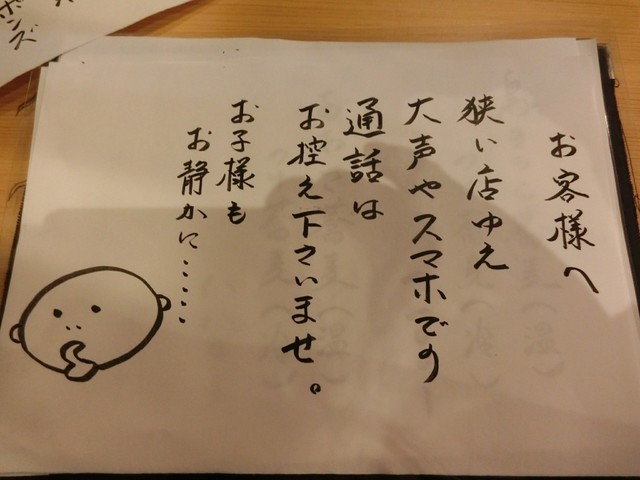 お客様へ
狭い店ゆえ
大声やスマホでの
通話は
お控え下さいませ。
お子様も
お静かに……
ポンズ